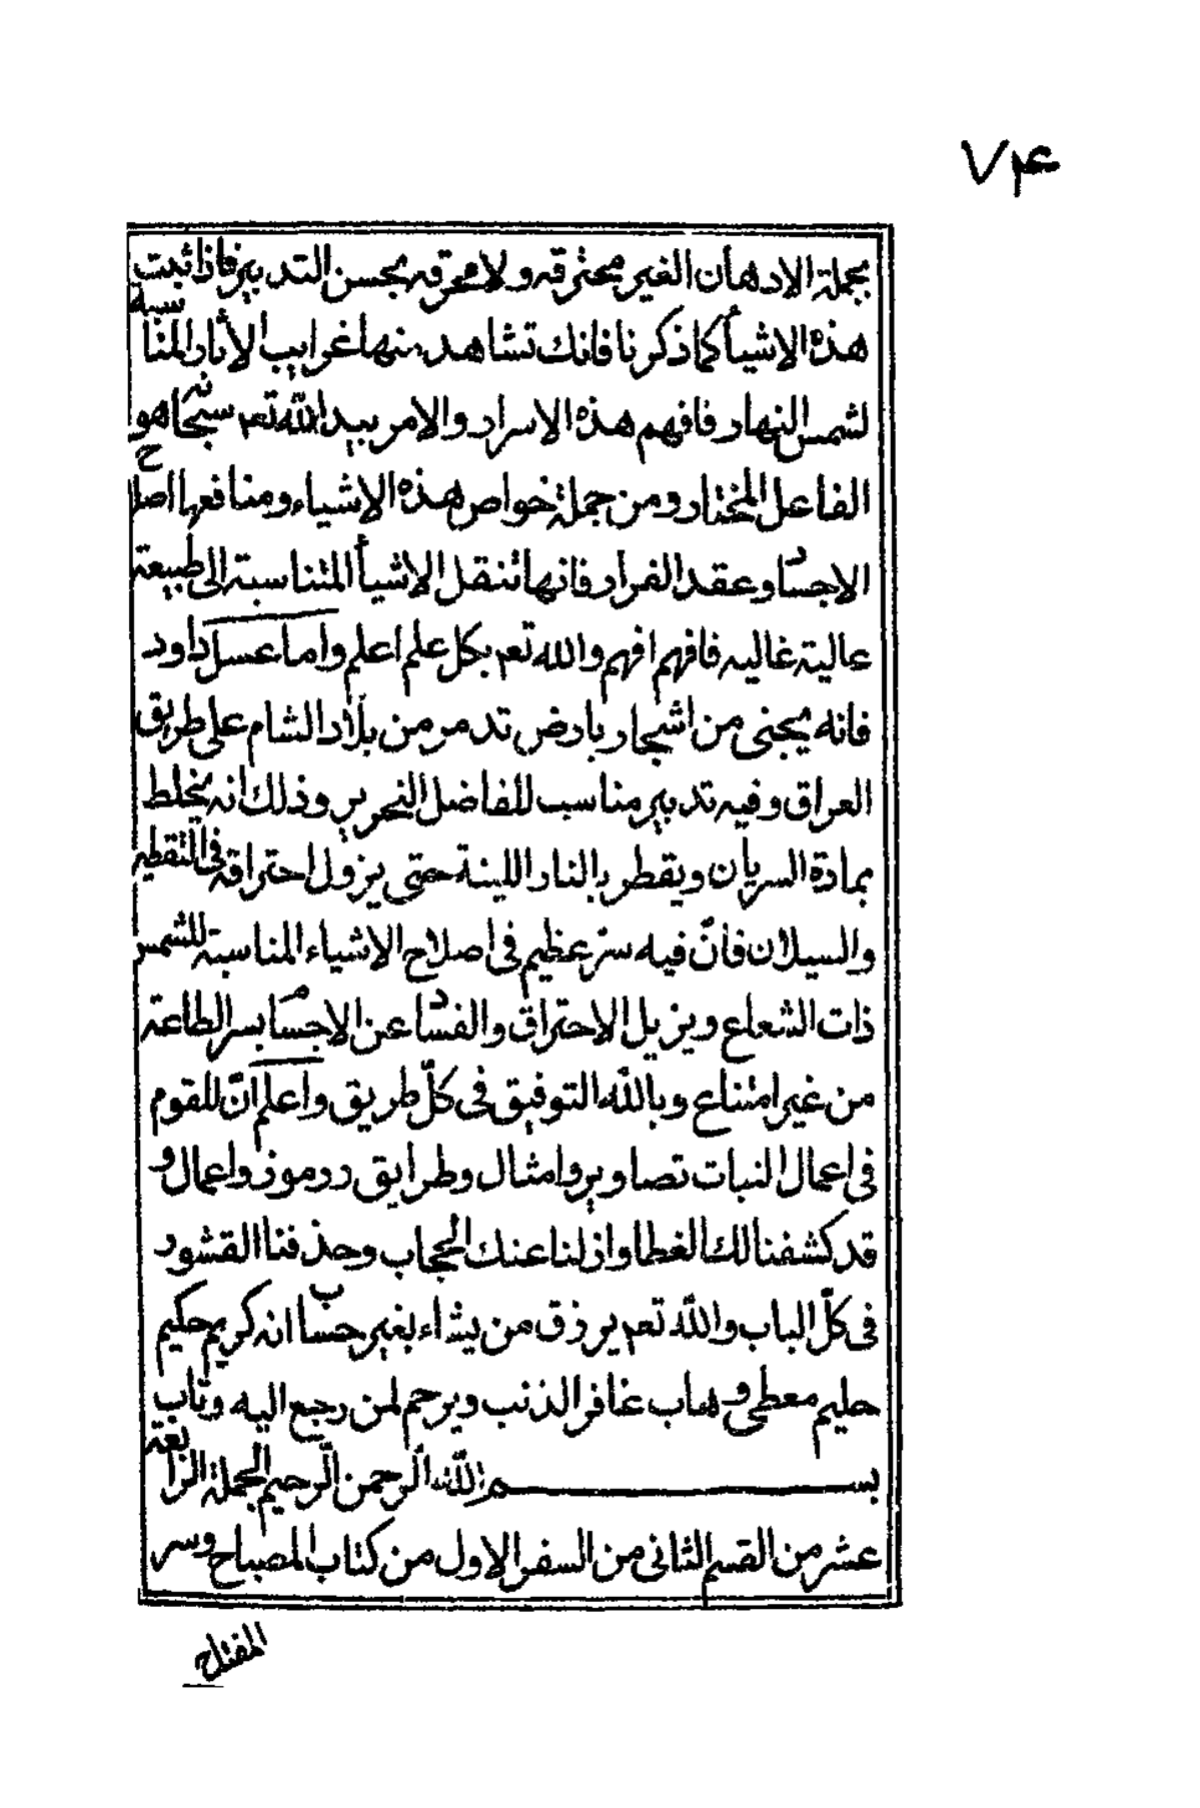 ۷۴
بجملة الادهان الغير محترقه ولا محرقه بحسن التدبير فاذا ثبت
هذه الاشيأ كما ذكرنا فانك تشاهد منها غرايب الأثار المناسبة
لشمس النهار فافهم هذه الاسرار والامر بيد الله تعم سبحانه هو
الفاعل المختار ومن جملة خواص هذه الاشياء ومنافعها اصلاح
الاجساد وعقد الفرار فانها تنقل الاشيأ المتناسبة الى طبيعة
عالية غاليه فافهم افهم والله تعم بكل علم اعلم واما عسل داود
فانه يجنى من اشجار بارض تدمر من بلاد الشام على طريق
العراق وفيه تدبير مناسب للفاضل النحرير وذلك انه يخلط
بمادة السريان ويقطر بالنار اللينة حتى يزول احتراقه فى التقطير
والسيلان فانّ فيه سرّ عظيم فى اصلاح الاشياء المناسبة للشمس
ذات الشعاع ويزيل الاحتراق والفساد عن الاجسام بسر الطاعة
من غير امتناع وبالله التوفيق فى كلّ طريق واعلم انّ للقوم
فى اعمال النبات تصاوير وامثال وطرايق ورموز واعمال و
قد كشفنا لك الغطا وازلنا عنك الحجاب وحذفنا القشور
فى كلّ الباب والله تعم يرزق من يشاء بغير حساب انه كريم حكيم
حليم معطى وهاب غافر الذنب ويرحم لمن رجع اليه وتاب
بسم الله الرحمن الرحيم الجملة الرابعة
عشر من القسم الثانى من السفر الاول من كتاب المصباح وسر
المفتاح